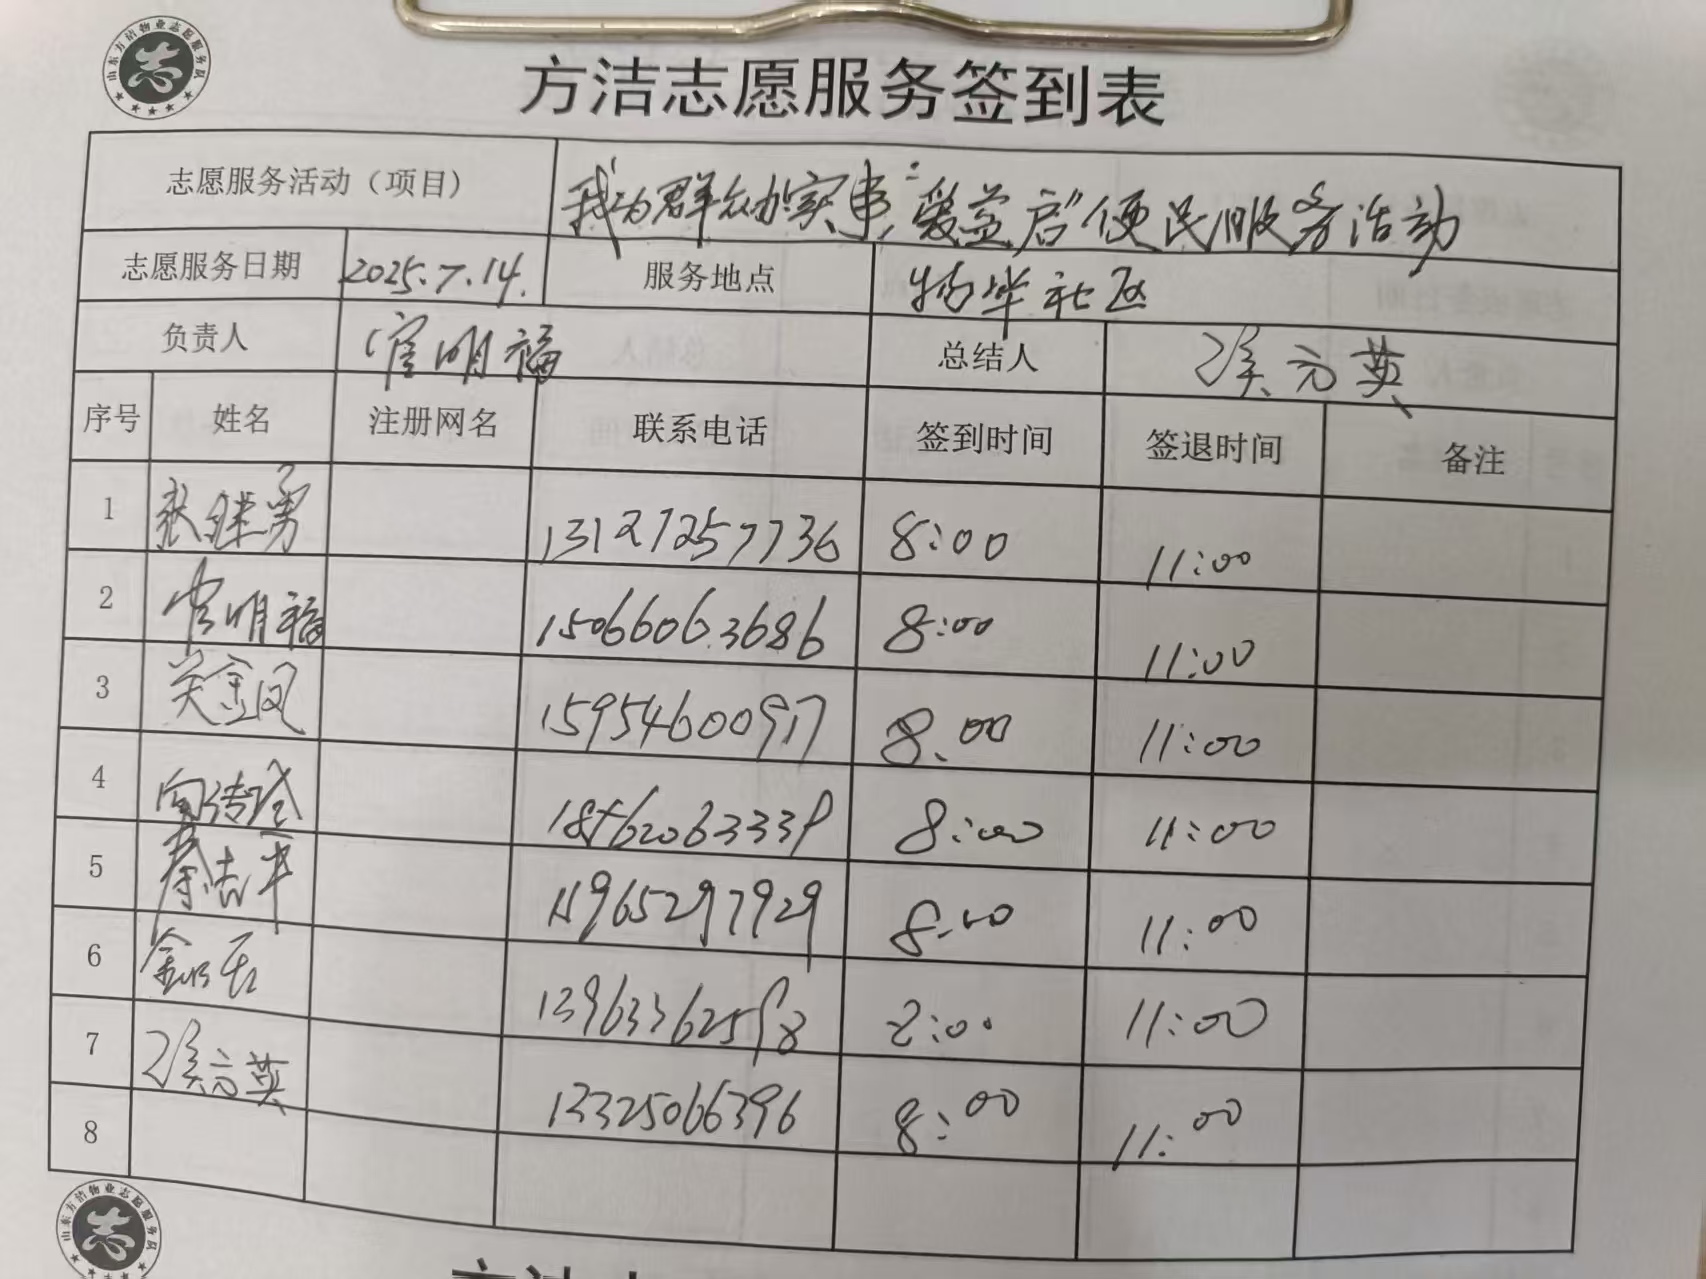 山东方洁物业志愿服务队
志
方洁志愿服务签到表
志愿服务活动（项目） 我为群众办实事，"爱益启"便民服务活动
志愿服务日期 2025.7.14. 服务地点 物华社区
负责人 官明福 总结人 侯方英
序号 姓名 注册网名 联系电话 签到时间 签退时间 备注
1 张继勇 13127257736 8:00 11:00
2 官明福 15066063686 8:00 11:00
3 关金凤 15954600917 8:00 11:00
4 18562063339 8:00 11:00
5 秦洁平 15965297929 8:00 11:00
6 13963362598 8:00 11:00
7 侯方英 13325066396 8:00 11:00
8
山东方洁物业志愿服务队
志